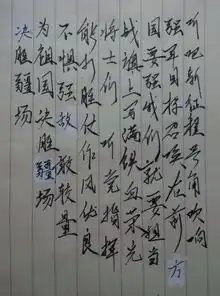 听吧新征程号角吹响
强军目标召唤在前方
国要强我们就要担当
战旗上写满铁血荣光
将士们 听党指挥
能打胜仗作风优良
不惧强敌敢较量
为祖国决胜疆场
决胜疆场